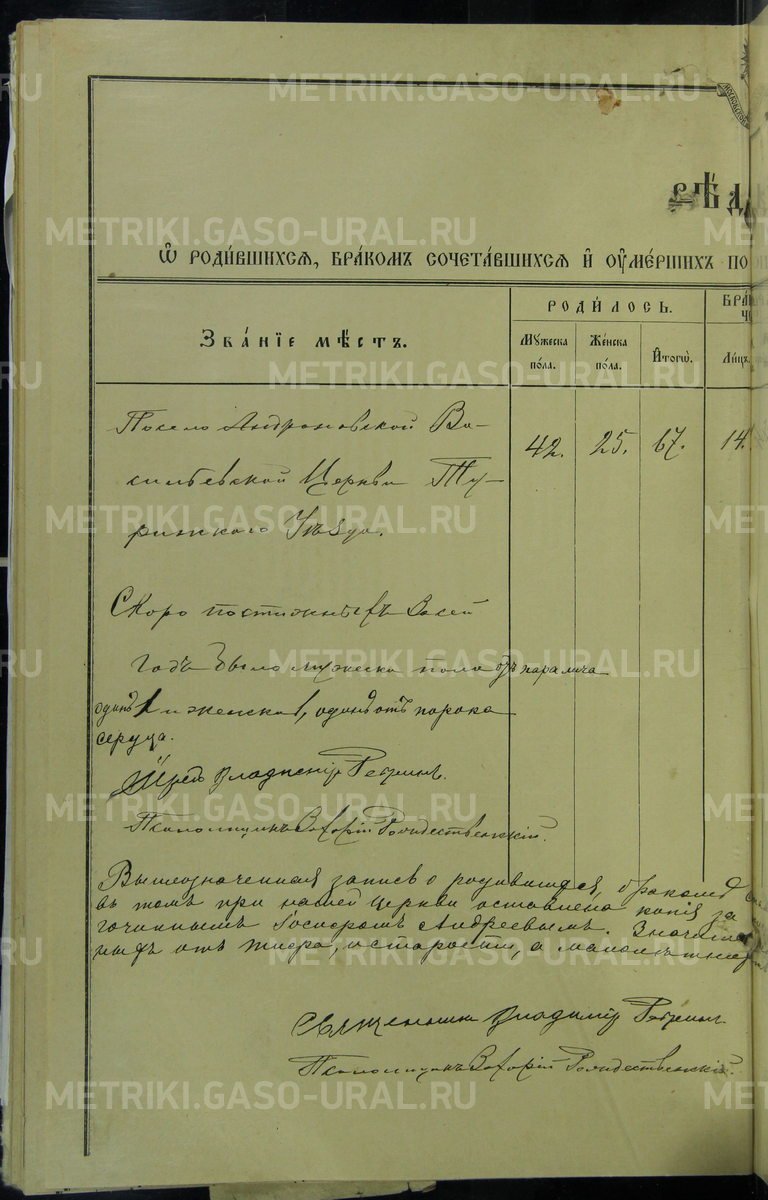 ВѢД
Ѡ РОДИ́ВШИХСѦ, БРА́КОМЪ СОЧЕТА́ВШИХСѦ И҆ ОУ҆МЕ́РШИХЪ ПО
ЗВА́НІЕ МѢ́СТЪ.
РОДИ́ЛОСЬ.
Мꙋ́жеска по́ла.
Же́нска по́ла.
И҆тогѡ̀.
БРА
Ли́цъ.
По селу Андроновской Ва-
сильевской Церкви Ту-
ринскаго Уѣзда.
42. 25. 67. 14.
Скоро постижныхъ въ сей
годъ было мужеска пола отъ паралича
одинъ 1 и женскаго, одинъ отъ порока
сердца.
Іерей Владимір
Псаломщикъ Рождественскій.
Вышеозначенная запись о родившихся, бракомъ
въ томъ при нашей церкви оставлена копія за
гочиннымъ Іоснфомъ Андреевымъ. Значат
ныхъ отъ тифа, и старости, а малолѣтн
Священникъ Владимір
Псаломщикъ Рождественскій.
METRIKI.GASO-URAL.RU